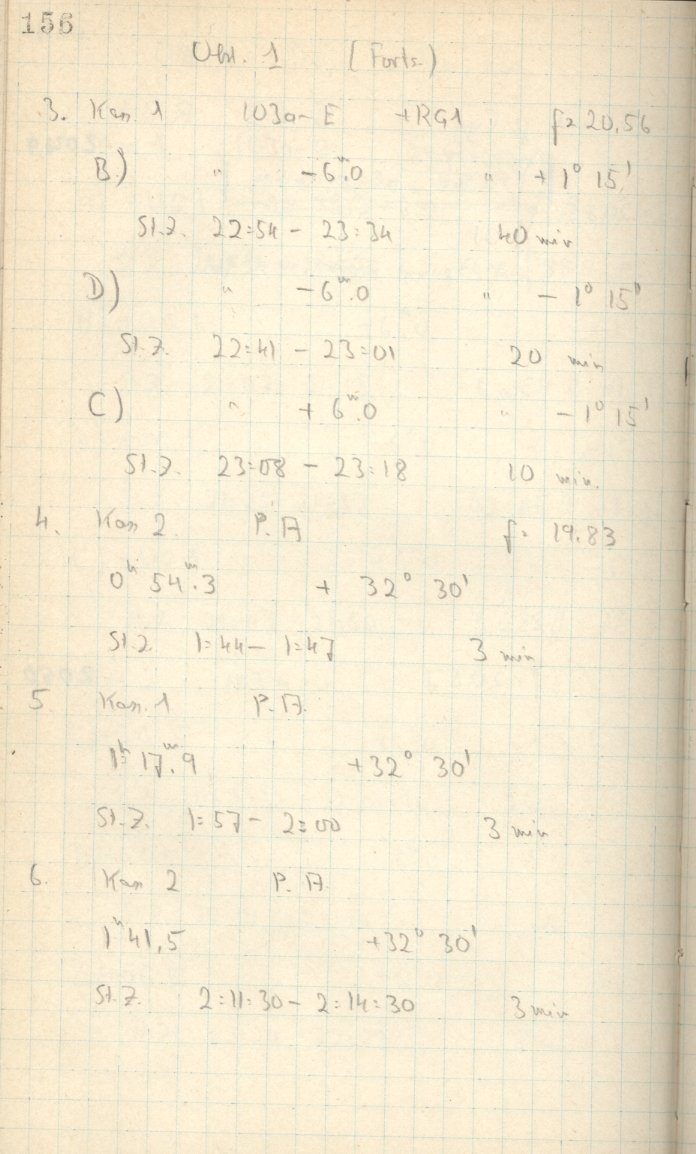 156
Obl. 1 (Forts.)
3. Kam 1 103a-E +RG1 f= 20,56
B) " -6ᵐ.0 " + 1° 15'
St.Z. 22:54 - 23:34 40 min
D) " -6ᵐ.0 " - 1° 15'
St.Z. 22:41 - 23:01 20 min
C) " + 6ᵐ.0 " - 1° 15'
St.Z. 23:08 - 23:18 10 min.
4. Kam 2 P.A f= 19.83
0ʰ 54ᵐ.3 + 32° 30'
St.Z. 1:44 - 1:47 3 min
5 Kam. 1 P.A.
1ʰ 17ᵐ.9 +32° 30'
St.Z. 1:57 - 2:00 3 min
6. Kam 2 P.A.
1ʰ 41,5 +32° 30'
St.Z. 2:11:30 - 2:14:30 3 min